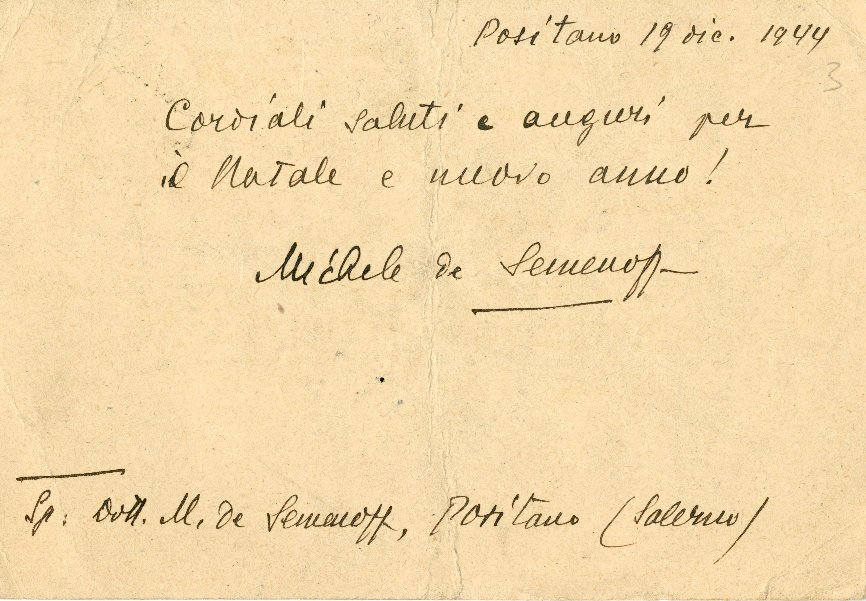 Positano 19 dic. 1944
3
Cordiali saluti e auguri per
il Natale e nuovo anno!
Michele de Semenoff
Sp: Dott. M. de Semenoff, Positano (Salerno)